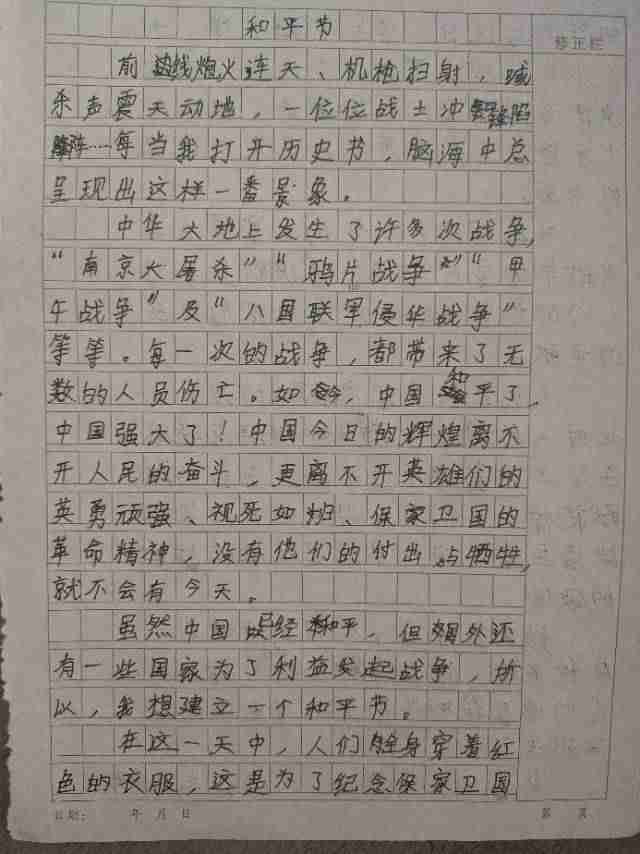 和平节
修正栏
前线炮火连天、机枪扫射,喊
杀声震天动地,一位位战士冲锋陷
阵……每当我打开历史书,脑海中总
呈现出这样一番景象。
中华大地上发生了许多次战争,
“南京大屠杀”“鸦片战争”“甲
午战争”及“八国联军侵华战争”
等等。每一次的战争,都带来了无
数的人员伤亡。如今,中国和平了,
中国强大了!中国今日的辉煌离不
开人民的奋斗,更离不开英雄们的
英勇顽强、视死如归、保家卫国的
革命精神,没有他们的付出与牺牲,
就不会有今天。
虽然中国已经和平,但国外还
有一些国家为了利益发起战争,所
以,我想建立一个和平节。
在这一天中,人们全身穿着红
色的衣服,这是为了纪念保家卫国
日期: 年 月 日 第 页